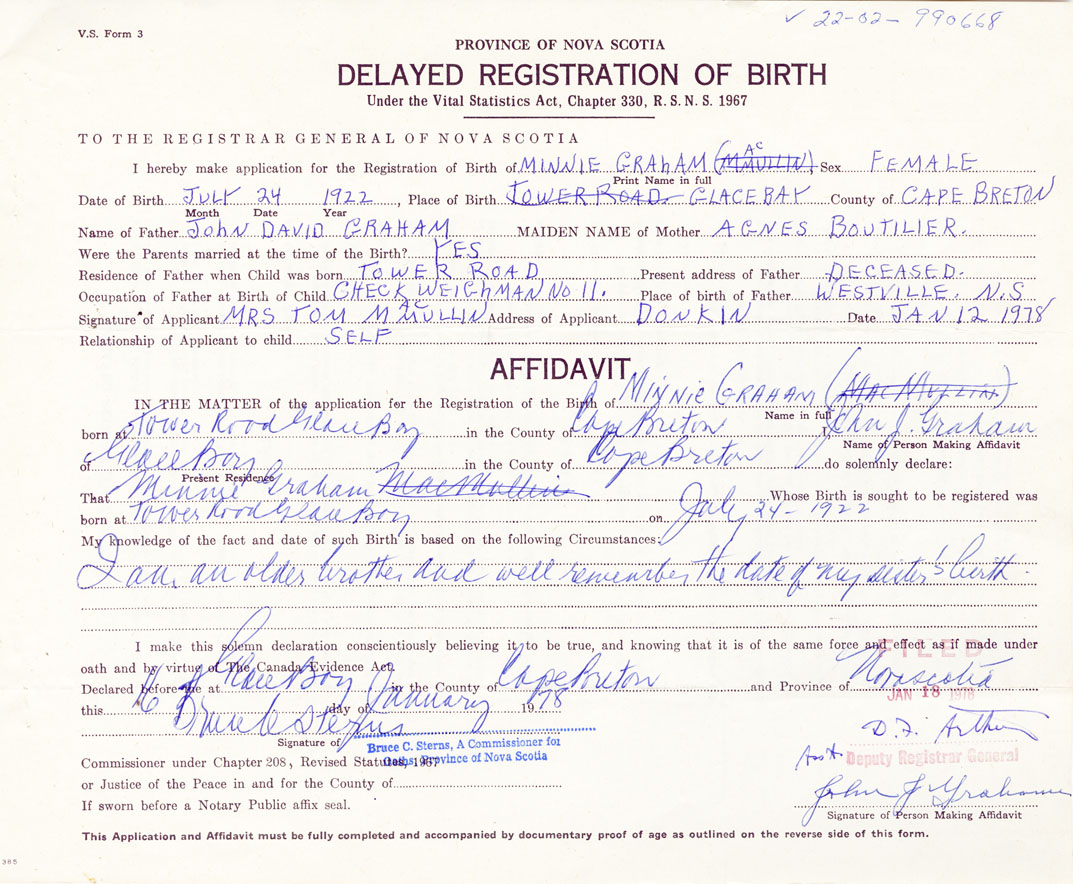 ✓ 22-02-990668
V.S. Form 3
PROVINCE OF NOVA SCOTIA
DELAYED REGISTRATION OF BIRTH
Under the Vital Statistics Act, Chapter 330, R. S. N. S. 1967
TO THE REGISTRAR GENERAL OF NOVA SCOTIA
I hereby make application for the Registration of Birth of MINNIE GRAHAM (MACMULLIN) Sex FEMALE
Print Name in full
Date of Birth JULY 24 1922, Place of Birth TOWER ROAD - GLACE BAY County of CAPE BRETON
Month Date Year
Name of Father JOHN DAVID GRAHAM MAIDEN NAME of Mother AGNES BOUTILIER.
Were the Parents married at the time of the Birth? YES
Residence of Father when Child was born TOWER ROAD Present address of Father DECEASED.
Occupation of Father at Birth of Child CHECK WEIGHMAN NO 11. Place of birth of Father WESTVILLE. N.S
Signature of Applicant MRS TOM MACMULLIN Address of Applicant DONKIN Date JAN 12 1978
Relationship of Applicant to child SELF
AFFIDAVIT
IN THE MATTER of the application for the Registration of the Birth of Minnie GRAHAM (MacMullin)
Name in full
born at Tower Road Glace Bay in the County of Cape Breton I, John J. Graham
Name of Person Making Affidavit
of Glace Bay in the County of Cape Breton do solemnly declare:
Present Residence
That Minnie Graham MacMullin Whose Birth is sought to be registered was
born at Tower Road Glace Bay on July 24 - 1922
My knowledge of the fact and date of such Birth is based on the following Circumstances:
I am an older brother and well remember the date of my sister's birth.
I make this solemn declaration conscientiously believing it to be true, and knowing that it is of the same force and effect as if made under
oath and by virtue of The Canada Evidence Act.
FILED
Declared before me at Glace Bay in the County of Cape Breton and Province of Nova Scotia
JAN 18 1978
this 16 day of January 1978
Bruce C Sterns
D. F. Arthur
Signature of
Bruce C. Sterns, A Commissioner for
Oaths, Province of Nova Scotia
Asst Deputy Registrar General
Commissioner under Chapter 208, Revised Statutes 1967
or Justice of the Peace in and for the County of
John J Graham
If sworn before a Notary Public affix seal.
Signature of Person Making Affidavit
This Application and Affidavit must be fully completed and accompanied by documentary proof of age as outlined on the reverse side of this form.
385